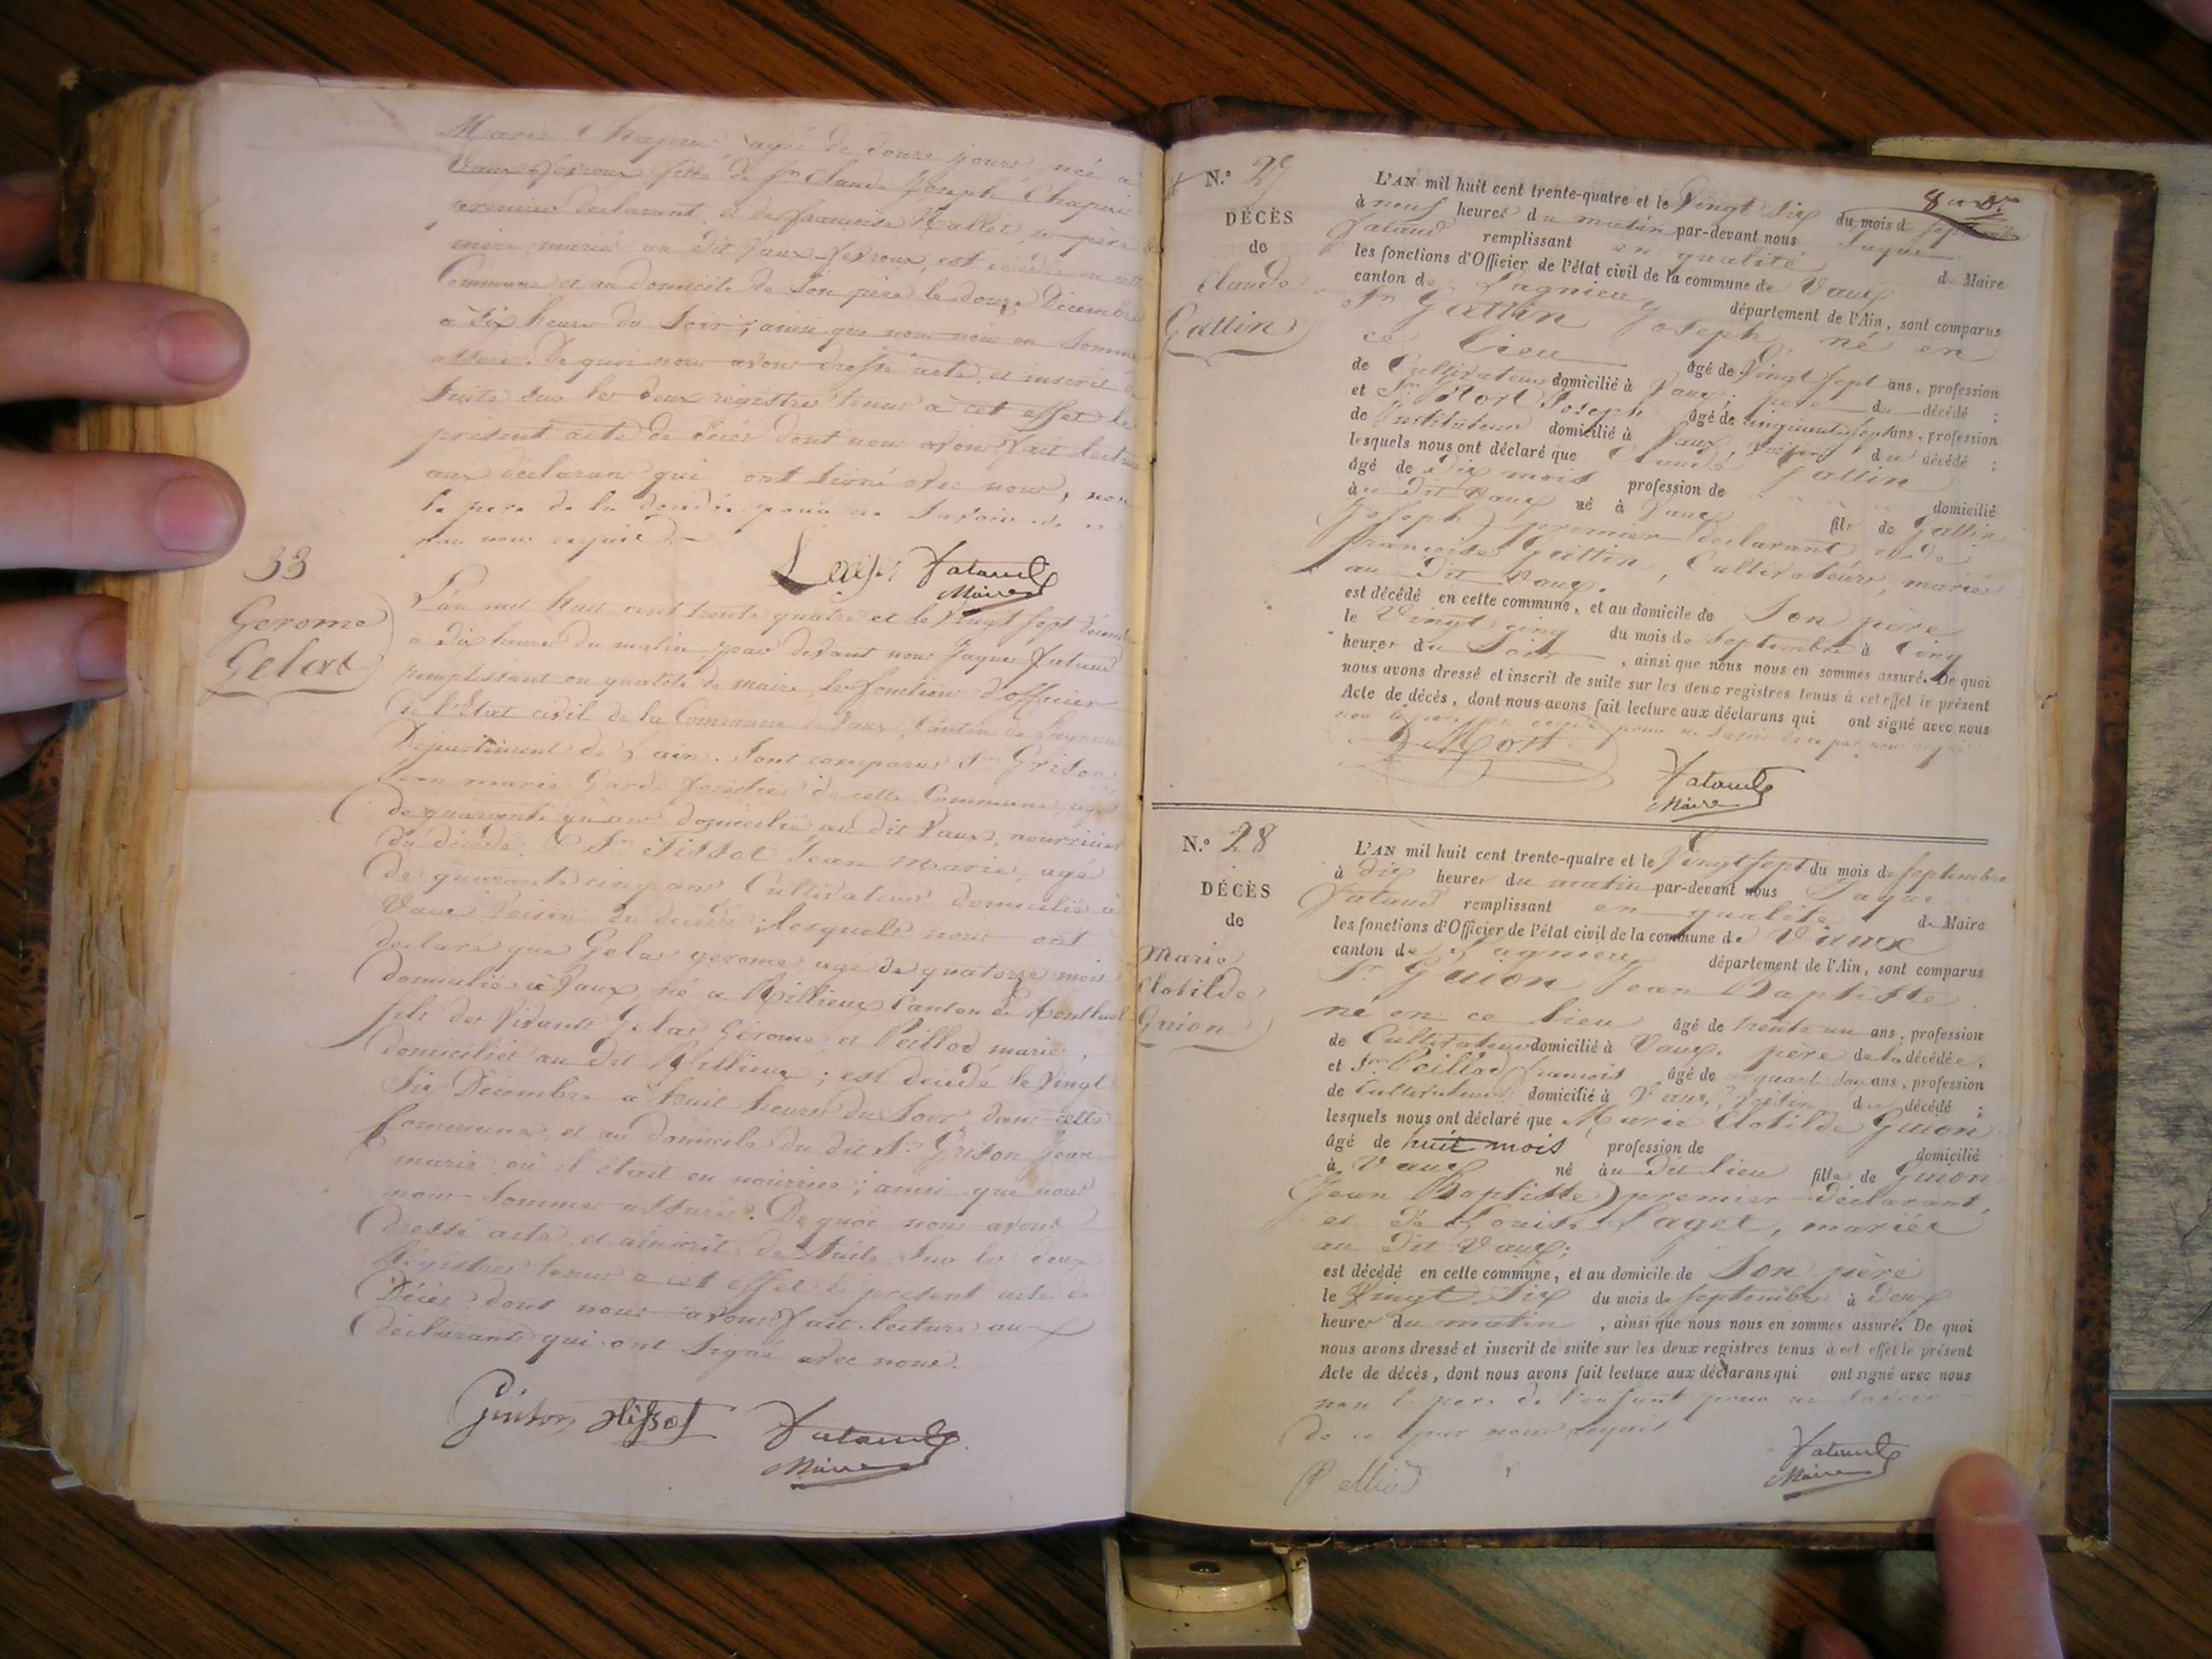 Marie Chapuis, agée de douze jours, née à
Vaux fevroux fille de Sr Claude Joseph Chapuis
premier déclarant, et de françoise Mallet, ses père &
mère, mariés au dit Vaux fevroux, est décédée en cette
Commune et au domicile de Son père le douze Décembre
à Six heures du Soir; ainsi que nous nous en Sommes
assuré. De quoi nous avons dressé acte et inscrit de
Suite Sur les deux registres tenus à cet effet le
présent acte de décès dont nous avons fait lecture
aux déclarans qui ont Signé avec nous, non
le père de la décédée pour ne Savoir de ce
par nous requis
Leger Fataud
Maire
33
Gerome
Gelas
L'an mil huit cent trente quatre et le vingt Sept décembre
a dix heures du matin, par devant nous Jaques Fataud
remplissant en qualité de maire les fonctions d'officier
de l'Etat civil de la Commune de Vaux, Canton de Lagnieu
Département de l'ain. Sont comparus Sr Grison
Jean marie Garde forestier de cette Commune, agé
de quarante un ans domicilié au dit Vaux, nourricier
du décédé, & Sr Tissot Jean Marie, agé
de quarante cinq ans Cultivateur domicilié à
Vaux Voisin du décédé; lesquels nous ont
déclaré que Gelas gerome agé de quatorze mois
domicilié à Vaux, né a Rillieux Canton de Montluel
fils des vivants Gelas Gerome et Peillod marie,
domiciliés au dit Rillieux; est décédé le Vingt
Six Décembre à huit heures du Soir, dans cette
Commune, et au domicile du dit Sr Grison Jean
marie où il était en nourrice; ainsi que nous
nous Sommes assurés. De quoi nous avons
dressé acte, et inscrit de Suite Sur les deux
Régistres tenus à cet effet le présent acte de
Décès dont nous avons fait lecture aux
déclarants qui ont Signé avec nous.
Grison Tissot Fataud
Maire
8 u Dr
N.º 27
DÉCÈS
de
Claude
Gattin
L'AN mil huit cent trente-quatre et le Vingt Six du mois de Septembre
à neuf heures du matin par-devant nous Jaques
Fataud remplissant en qualité de Maire
les fonctions d'Officier de l'état civil de la commune de Vaux
canton de Lagnieu département de l'Ain, sont comparus
Sr Gattin Joseph, né en
ce lieu âgé de Vingt Sept ans, profession
de Cultivateur domicilié à Vaux; père du décédé;
et Sr Mort Joseph âgé de cinquante Sept ans, profession
de Instituteur domicilié à Vaux, Voisin du décédé;
lesquels nous ont déclaré que Claude Gattin
âgé de dix mois profession de domicilié
à au dit Vaux né à Vaux fils de Gattin
Joseph premier déclarant et de
françoise Gattin, Cultivateurs, mariés
au dit Vaux.
est décédé en cette commune, et au domicile de Son père
le Vingt cinq du mois de Septembre à Cinq
heures du Soir, ainsi que nous nous en sommes assuré. De quoi
nous avons dressé et inscrit de suite sur les deux registres tenus à cet effet le présent
Acte de décès, dont nous avons fait lecture aux déclarans qui ont signé avec nous
non le père pour ne Savoir de ce par nous requis
Mort
Fataud
Maire
N.º 28
DÉCÈS
de
Marie
Clotilde
Guion
L'AN mil huit cent trente-quatre et le Vingt Sept du mois de Septembre
à dix heures du matin par-devant nous Jaques
Fataud remplissant en qualité de Maire
les fonctions d'Officier de l'état civil de la commune de Vaux
canton de Lagnieu département de l'Ain, sont comparus
Sr Guion Jean Baptiste
né en ce lieu âgé de trente un ans, profession
de Cultivateur domicilié à Vaux. père de la décédée,
et Sr Peillod françois âgé de ans, profession
de Cultivateur domicilié à Vaux, Voisin du décédé;
lesquels nous ont déclaré que Marie Clotilde Guion
âgé de huit mois profession de domicilié
à Vaux né au dit lieu fille de Guion
Jean Baptiste premier déclarant,
et de Louise Laget, mariés
au dit Vaux;
est décédé en cette commune, et au domicile de Son père
le Vingt Six du mois de Septembre à Deux
heures du matin, ainsi que nous nous en sommes assuré. De quoi
nous avons dressé et inscrit de suite sur les deux registres tenus à cet effet le présent
Acte de décès, dont nous avons fait lecture aux déclarans qui ont signé avec nous
non le père de l'enfant pour ne Savoir
de ce par nous requis
Pelliod
Fataud
Maire